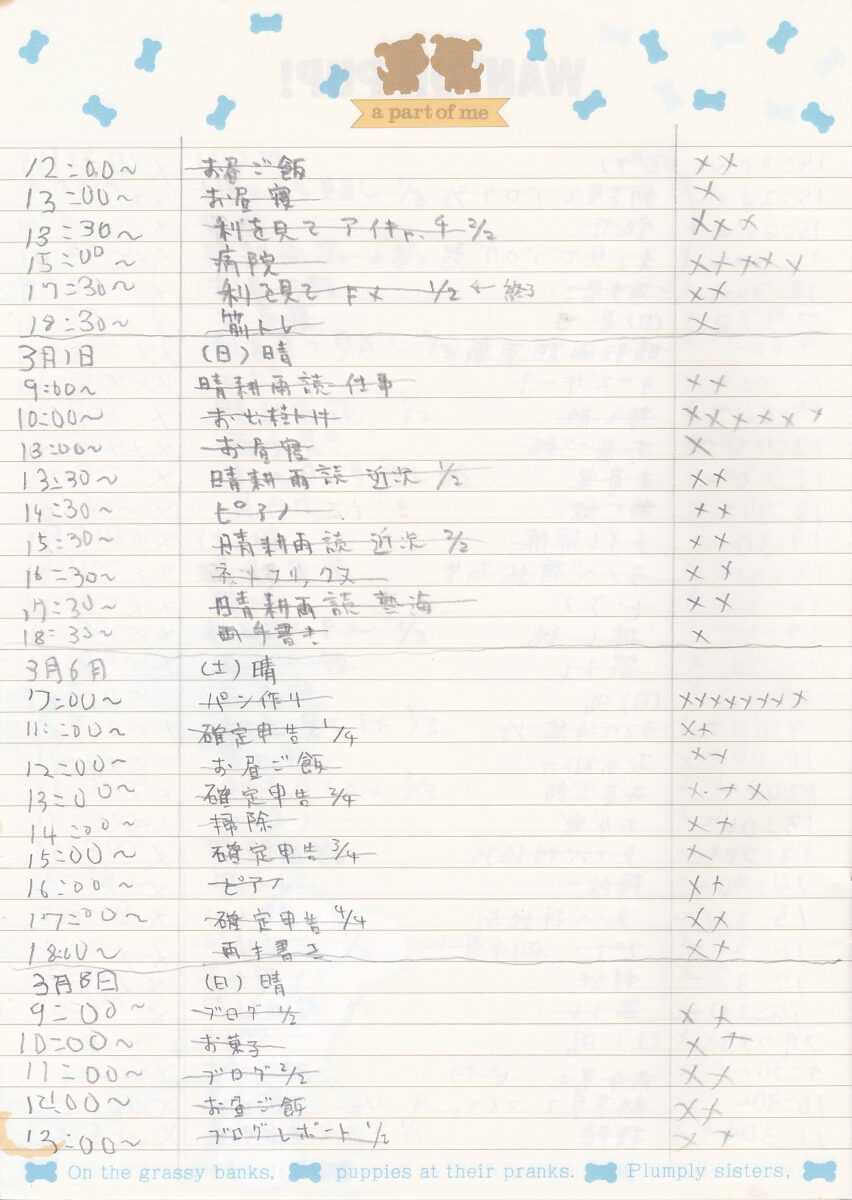 a part of me
12:00~ お昼ご飯 ××
13:00~ お昼寝 ×
13:30~ 利を見て アイキャッチ 2/2 ×××
15:00~ 病院 ×××××
17:30~ 利を見て ドメ 1/2 ← 終了 ××
18:30~ 筋トレ ×
3月1日 (日) 晴
9:00~ 晴耕雨読 仕事 ××
10:00~ ××××××
13:00~ お昼寝 ×
13:30~ 晴耕雨読 近次 1/2 ××
14:30~ ピアノ ××
15:30~ 晴耕雨読 近次 2/2 ××
16:30~ ネットフリックス ××
17:30~ 晴耕雨読 熱海 ××
18:30~ 両手書き ×
3月6日 (土) 晴
7:00~ パン作り ××××××××
11:00~ 確定申告 1/4 ××
12:00~ お昼ご飯 ××
13:00~ 確定申告 2/4 ×××
14:00~ 掃除 ××
15:00~ 確定申告 3/4 ×
16:00~ ピアノ ××
17:00~ 確定申告 4/4 ××
18:00~ 両手書き ××
3月8日 (日) 晴
9:00~ ブログ 1/2 ××
10:00~ お菓子 ××
11:00~ ブログ 2/2 ××
12:00~ お昼ご飯 ××
13:00~ ブログレポート 1/2 ××
On the grassy banks, puppies at their pranks. Plumply sisters,